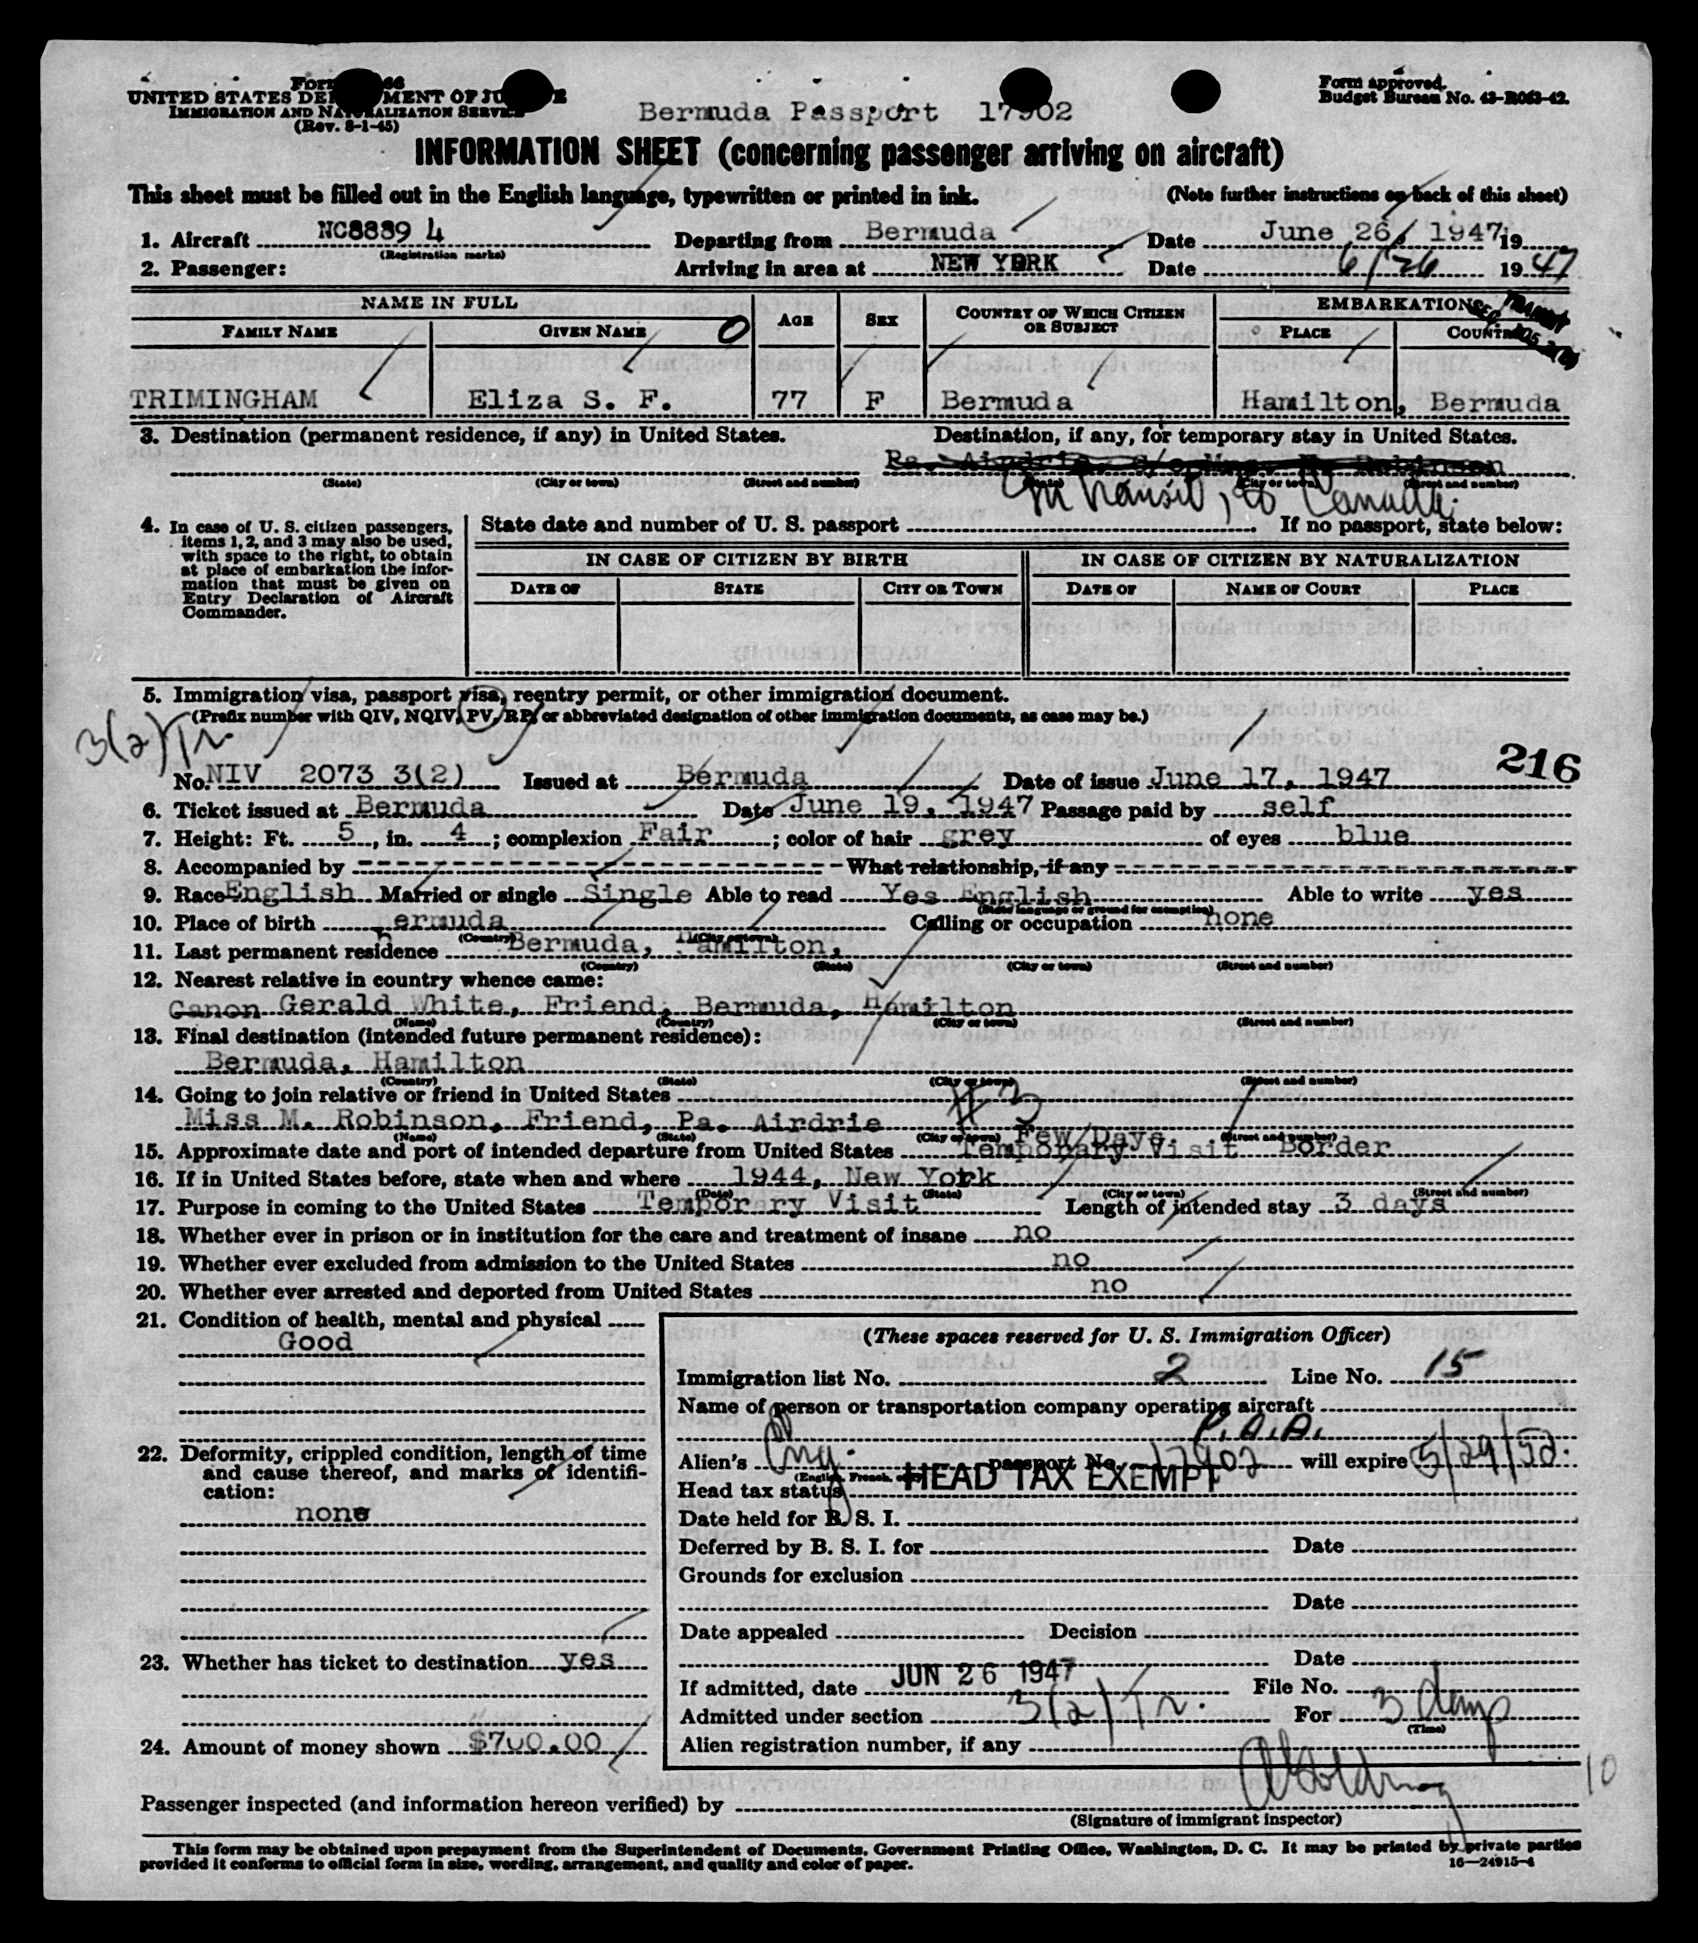 UNITED STATES
IMMIGRATION AND NATURALIZATION SERVICE
(Rev. 8-1-45)
Form approved.
Budget Bureau No. 43-R063-42.
Bermuda Passport 17902
INFORMATION SHEET (concerning passenger arriving on aircraft)
This sheet must be filled out in the English language, typewritten or printed in ink. (Note further instructions on back of this sheet)
1. Aircraft NC88894 Departing from Bermuda Date June 26, 1947 19
(Registration marks)
2. Passenger: Arriving in area at NEW YORK Date 6/26 1947
NAME IN FULL AGE SEX COUNTRY OF WHICH CITIZEN OR SUBJECT EMBARKATION
FAMILY NAME GIVEN NAME O PLACE
TRANSIT
TRIMINGHAM Eliza S. F. 77 F Bermuda Hamilton, Bermuda
3. Destination (permanent residence, if any) in United States. Destination, if any, for temporary stay in United States.
(State) (City or town) (Street and number) (State) (City or town) (Street and number)
In transit, to Canada.
4. In case of U. S. citizen passengers, items 1, 2, and 3 may also be used, with space to the right, to obtain at place of embarkation the information that must be given on Entry Declaration of Aircraft Commander.
State date and number of U. S. passport If no passport, state below:
IN CASE OF CITIZEN BY BIRTH IN CASE OF CITIZEN BY NATURALIZATION
DATE OF STATE CITY OR TOWN DATE OF NAME OF COURT PLACE
5. Immigration visa, passport visa, reentry permit, or other immigration document.
(Prefix number with QIV, NQIV, PV, RP, or abbreviated designation of other immigration documents, as case may be.)
3(2)Tr.
216
No. NIV 2073 3(2) Issued at Bermuda Date of issue June 17, 1947
6. Ticket issued at Bermuda Date June 19, 1947 Passage paid by self
7. Height: Ft. 5, in. 4; complexion Fair; color of hair grey of eyes blue
8. Accompanied by What relationship, if any
9. Race English Married or single Single Able to read Yes English Able to write yes
(State language or ground for exemption)
10. Place of birth Bermuda Calling or occupation none
(Country) (City or town)
11. Last permanent residence Bermuda, Hamilton,
(Country) (State) (City or town) (Street and number)
12. Nearest relative in country whence came:
Canon Gerald White, Friend, Bermuda, Hamilton
(Name) (Country) (City or town) (Street and number)
13. Final destination (intended future permanent residence):
Bermuda, Hamilton
(Country) (State) (City or town) (Street and number)
14. Going to join relative or friend in United States
Miss M. Robinson, Friend, Pa. Airdrie
(Name) (State) (City or town) (Street and number)
Few Days
15. Approximate date and port of intended departure from United States Temporary Visit Border
16. If in United States before, state when and where 1944, New York
(Date) (State) (City or town) (Street and number)
17. Purpose in coming to the United States Temporary Visit Length of intended stay 3 days
18. Whether ever in prison or in institution for the care and treatment of insane no
19. Whether ever excluded from admission to the United States no
20. Whether ever arrested and deported from United States no
21. Condition of health, mental and physical
Good
22. Deformity, crippled condition, length of time and cause thereof, and marks of identification:
none
23. Whether has ticket to destination yes
24. Amount of money shown $700.00
(These spaces reserved for U. S. Immigration Officer)
Immigration list No. 2 Line No. 15
Name of person or transportation company operating aircraft
P.A.A.
Alien's Eng. passport No. 17902 will expire 5/29/52.
Head tax status HEAD TAX EXEMPT
Date held for B. S. I.
Deferred by B. S. I. for Date
Grounds for exclusion
Date
Date appealed Decision
Date
If admitted, date JUN 26 1947 File No.
Admitted under section 3(2)Tr. For 3 days
(Time)
Alien registration number, if any
10
Passenger inspected (and information hereon verified) by
(Signature of immigrant inspector)
This form may be obtained upon prepayment from the Superintendent of Documents, Government Printing Office, Washington, D. C. It may be printed by private parties
provided it conforms to official form in size, wording, arrangement, and quality and color of paper.
16—24915-4